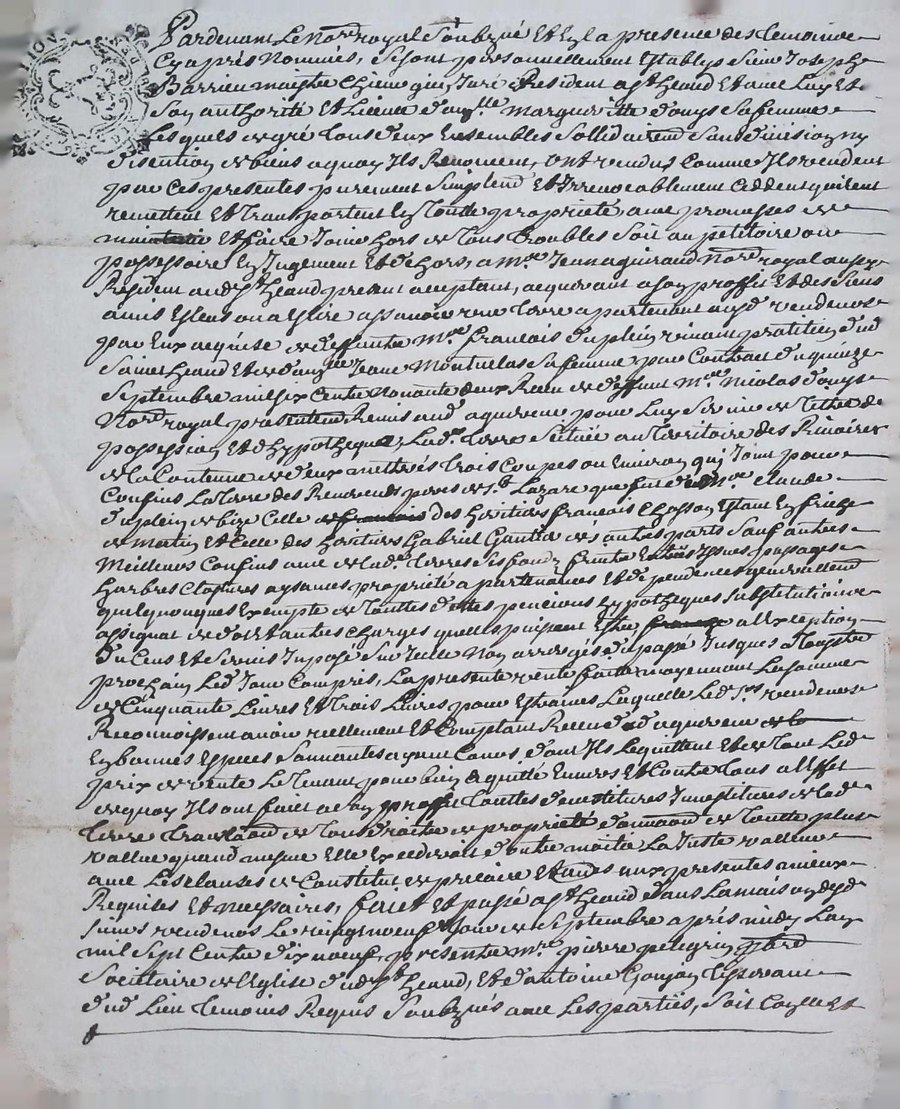 Pardevant Le No.re royal Soubzné Et En la presence des temoins
Cy aprés Nommés, Se sont personnellement Establys Sieur Joseph
Barrieu maistre Chirurgien Juré Resident a St heand Et avec Luy Et
Son authorité Et Licence d'am.lle margueritte d'ouys Sa femme
Lesquels de gré tous deux Ensembles Sollidairem.t Sans division ny
discution de biens a quoy Ils Renoncent, ont vendus Comme Ils vendent
par Ces presentes purement Simplem.t Et Irrevocablement Ceddent quittent
remettent Et transportent En toutte propriété avec promesses de
maintenir Et faire Jouir hors de tous troubles Soit au petitoire ou
possessoire En Jugement Et dehors, a M.re Jean aguiraud No.re royal aussy
Resident aud. St heand present acceptant, acquerant a son proffit Et des Siens
amis Esleus ou a Eslire assavoir une terre apartenant ausd. vendeurs
par Eux acquise de deffunt M.re francois duplein vivant pratitien dud.
Saint heand Et de d'am.lle Jeane Montuclas Sa femme par Contract du quinze
Septembre mil six Cents Nonante deux Receu de deffunt M.re Nicolas d'ouys
No.re royal presentem.t Remis aud. aquereur pour Luy Servir de tittre de
possession Et d'hypotheque, Lad. terre Scituée au territoire des Rivoires
de la Contenue de deux mettrés trois Coupes ou Environ qui Joint pour
Confins La terre des Reverends peres de St Lazare que fut de M.re Claude
duplein de bize Celle des heritiers francois Chosson Estant En friche
de matin Et Celle des heritiers Gabriel Gautier des autres parts Sauf autres
Meilleurs Confins avec de lad. terre Ses fondz fruits Entrées Issues passages
harbres Clotures aysances propriété apartenances Et dependences generallem.t
quelquonques Exempte de touttes dettes pencions hypotheques Substitution
assignat de dot Et autres Charges quelles puissent Estre a l'Exception
du Cens Et Servis Imposé Sur Icelle Non arreragés Et payé Jusques
prochain Led. Jour Compris, La presente vente faitte moyennant La Somme
de Cinquante Livres Et trois Livres pour Estraines Laquelle Led. Srs vendeurs
Reconnoissent avoir reellement Et Comptant Receu dud. aquereur
En bonnes Especes Sonnantes ayant Cours, dont Ils Le quittent Et de tout Led.
prix de vente Le tenant pour bien aquitté Envers Et Contre tous a l'Effet
de quoy Ils ont fait a son proffit touttes devestitures Investitures de lad.
terre translaõn de tous droits de propriété donnaõn de toutte plus
vallue quand mesme Elle Excedroit d'outre moitié La Juste valleur
avec Les Clauses de Constitut de precaire Et autres aux presentes mieux
Requises Et necessaires, fait Et passé a St heand dans La maison desd.
Sieurs vendeurs Le vingt neuf Jour de Septembre aprés midy L'an
mil Sept Cents dix neuf, presents M.re pierre pelegrin ptre
Societaire de L'Eglise dud. St heand, Et d'antoine Goujon Tisserant
dud. Lieu temoins Requis Soubznés avec Les parties, Soit